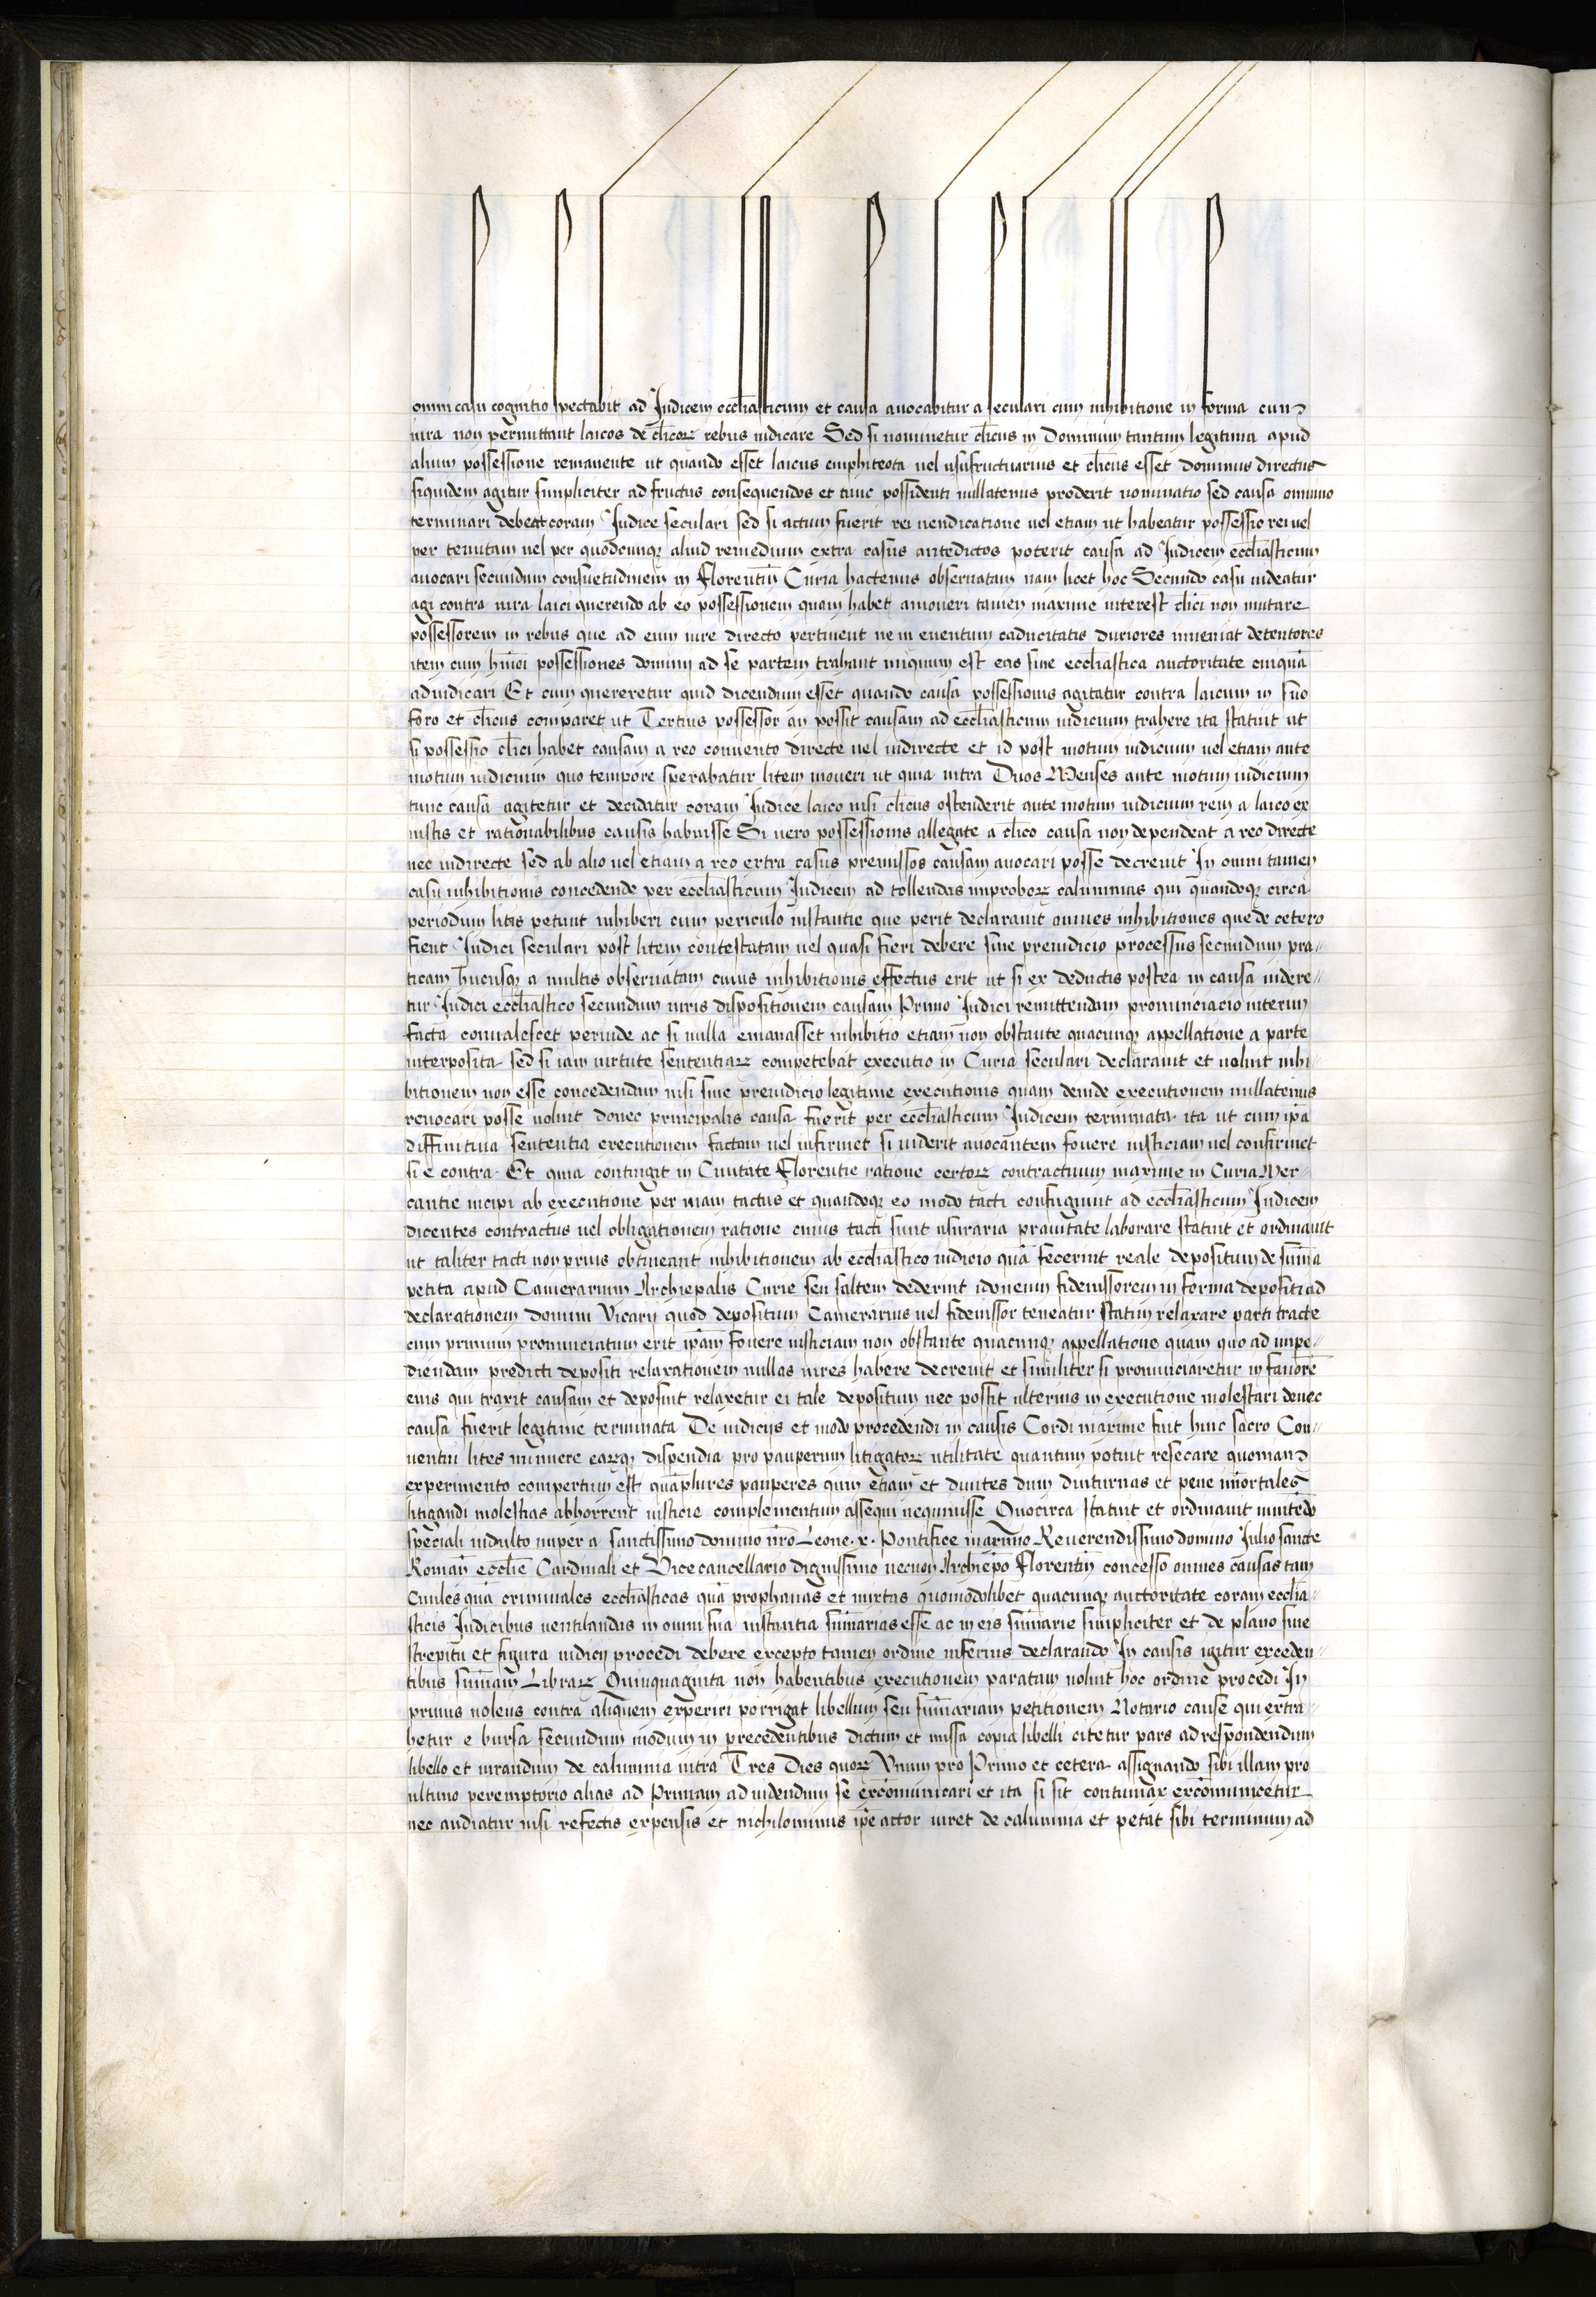 omni casu cognitio spectabit ad Judicem eccl̄iasticum et causa auocabitur a seculari cum inhibitione in forma cum
iura non permittant laicos de cl̄icoꝝ rebus iudicare Sed si nominetur cl̄icus in Dominum tantum legitima apud
alium possessione remanente ut quando esset laicus emphiteota uel usufructuarius et cl̄icus esset dominus directus
siquidem agitur simpliciter ad fructus consequendos et tunc possidenti nullatenus proderit nominatio sed causa omnino
terminari debeat coram Judice seculari sed si actum fuerit rei uendicatione uel etiam ut habeatur possessio rei uel
per tenutam uel per quodcunqꝫ aliud remedium extra casus antedictos poterit causa ad Judicem eccl̄iasticum
auocari secundum consuetudinem in Florentin̄ Curia hactenus obseruatam nam licet hoc Secundo casu uideatur
agi contra iura laici querendo ab eo possessionem quam habet amoueri tamen maxime interest cl̄ici non mutare
possessorem in rebus que ad eum iure directo pertinent ne in euentum caducitatis duriores inueniat detentores
item cum hm̄oi possessiones dominij ad se partem trahant iniquum est eas sine eccl̄iastica auctoritate cuiquā
adiudicari Et cum quereretur quid dicendum esset quando causa possessionis agitatur contra laicum in suo
foro et cl̄icus comparet ut Tertius possessor an possit causam ad eccl̄iasticum iudicium trahere ita statuit ut
si possessio cl̄ici habet causam a reo conuento directe uel indirecte et id post motum iudicium uel etiam ante
motum iudicium quo tempore sperabatur litem moueri ut quia intra Duos Menses ante motum iudicium
tunc causa agitetur et decidatur coram Judice laico nisi cl̄icus ostenderit ante motum iudicium rem a laico ex
iustis et rationabilibus causis habuisse Si uero possessionis allegate a cl̄ico causa non dependeat a reo directe
nec indirecte sed ab alio uel etiam a reo extra casus premissos causam auocari posse decreuit In omni tamen
casu inhibitionis concedende per eccl̄iasticum Judicem ad tollendas improboꝝ calumnias qui quandoqꝫ circa
periodum litis petunt inhiberi cum periculo instantie que perit declarauit omnes inhibitiones que de cetero
fient Judici seculari post litem contestatam uel quasi fieri debere sine preiudicio processus secundum pra-
ticam hucusqꝫ a multis obseruatam cuius inhibitionis effectus erit ut si ex deductis postea in causa uidere-
tur Judici eccl̄iastico secundum iuris dispositionem causam Primo Judici remittendam pronunciacio interim
facta conualescet perinde ac si nulla emanasset inhibitio etiam non obstante quacunqꝫ appellatione a parte
interposita sed si iam uirtute sententiaꝝ competebat executio in Curia seculari declarauit et uoluit inhi-
bitionem non esse concedendam nisi sine preiudicio legitime executionis quam deinde executionem nullatenus
reuocari posse uoluit donec principalis causa fuerit per eccl̄iasticum Judicem terminata ita ut cum ip̄a
diffinitiua sententia executionem factam uel infirmet si uiderit auocantem fouere iusticiam uel confirmet
si e contra. Et quia contingit in Ciuitate Florentie ratione certoꝝ contractuum maxime in Curia Mer-
cantie incipi ab executione per uiam tactus et quandoqꝫ eo modo tacti confugiunt ad eccl̄iasticum Judicem
dicentes contractus uel obligationem ratione cuius tacti sunt usuraria prauitate laborare statuit et ordinauit
ut taliter tacti non prius obtineant inhibitionem ab eccl̄iastico iudicio quā fecerint reale depositum de sum̄a
petita apud Camerarium Archiepalis Curie seu saltem dederint idoneum fideiussorem in forma depositi ad
declarationem domini Vicarij quod depositum Camerarius uel fideiussor teneatur statim relaxare parti tracte
cum primum pronunciatum erit ip̄am fouere iusticiam non obstante quacunqꝫ appellatione quam quo ad impe-
diendam predicti depositi relaxationem nullas uires habere decreuit et similiter si pronunciaretur in fauorē
eius qui traxit causam et deposuit relaxetur ei tale depositum nec possit ulterius in executione molestari donec
causa fuerit legitime terminata De iudicijs et modo procedendi in causis Cordi maxime fuit huic sacro Con-
uentui lites minuere earūqꝫ dispendia pro pauperum litigatoꝝ utilitate quantum potuit resecare quoniam
experimento compertum est quāplures pauperes quin etiam et diuites dum diuturnas et pene im̄ortales
litigandi molestias abhorrent iusticie complementum assequi nequiuisse Quocirca statuit et ordinauit innitēdo
speciali indulto nuper a sanctissimo domino nr̄o Leone. x. Pontifice maximo Reuerendissimo domino Julio sancte
Roman̄ eccl̄ie Cardinali et Vicecancellario dignissimo necnon Archiep̄o Florentin̄ concesso omnes causas tam
Ciuiles quā criminales eccl̄iasticas quā prophanas et mixtas quomodolibet quacunqꝫ auctoritate coram eccl̄ia-
sticis Judicibus uentilandas in omni sua instantia sum̄arias esse ac in eis sum̄arie simpliciter et de plano sine
strepitu et figura iudicij procedi debere excepto tamen ordine inferius declarando In causis igitur exceden-
tibus sum̄am Libraꝝ Quinquaginta non habentibus executionem paratam uoluit hoc ordine procedi In
primis uolens contra aliquem experiri porrigat libellum seu sum̄ariam petitionem Notario cause qui extra-
hetur e bursa secundum modum in precedentibus dictum et missa copia libelli citetur pars ad respondendum
libello et iurandum de calumnia intra Tres Dies quoꝝ Vnum pro Primo et cetera assignando sibi illam pro
ultimo peremptorio alias ad Primam ad uidendum se excom̄unicari et ita si sit contumax excom̄unicetur
nec audiatur nisi refectis expensis et nichilominus ip̄e actor iuret de calumnia et petat sibi terminum ad